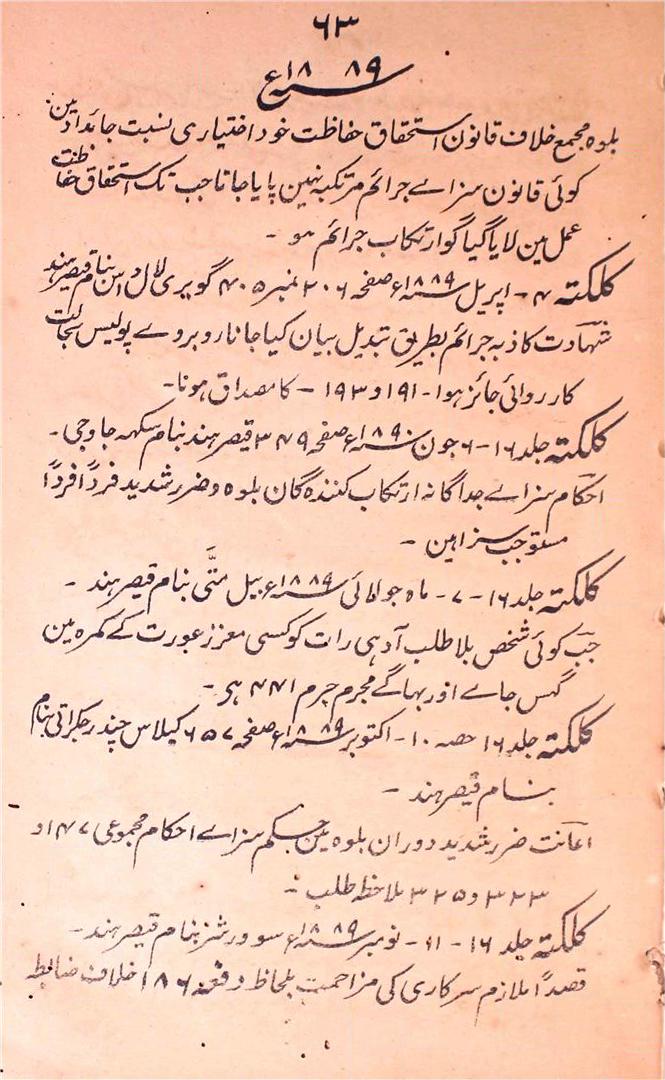 ۶۳
۱۸۸۹ء
بلوہ مجمع خلاف قانون استحقاق حفاظت خود اختیاری نسبت جائداد مین
کوئی قانون سزاے جرائم مرتکبہ نہین پایا جاتا جب تک استحقاق حفاظت
عمل مین لایا گیا گو ارتکاب جرائم ہو ۔
کلکتہ ۴ ۔ اپریل سنہ ۱۸۸۹ء صفحہ ۲۰۶ نمبر ۴۰۵ گویری لال داس بنام قیصر ہند
شہادت کاذبہ جرائم بطریق تبدیل بیان کیا جانا روبروے پولیس بحالت
کارروائی جائز ہوا ۔ ۱۹۱ و ۱۹۳ ۔ کا مصداق ہونا ۔
کلکتہ جلد ۱۶ ۔ ۶ جون سنہ ۱۸۹۰ء صفحہ ۳۴۹ قیصر ہند بنام سکہہ جاوجی ۔
احکام سزاے جداگانہ ارتکاب کنندہ گان بلوہ و ضرر شدید فرداً فرداً
مستوجب سزا ہین ۔
کلکتہ جلد ۱۶ ۔ ۷ ۔ ماہ جولائی سنہ ۱۸۸۹ء بیل متّی بنام قیصر ہند ۔
جب کوئی شخص بلا طلب آدہی رات کو کسی معزز عورت کے کمرہ مین
گہس جاے اور بہاگے مجرم جرم ۴۴۱ ہی ۔
کلکتہ جلد ۱۶ حصہ ۱۰ ۔ اکتوبر سنہ ۱۸۸۹ء صفحہ ۶۵۷ کیلاس چندر چکراتی بنام
بنام قیصر ہند ۔
اعانت ضرر شدید دوران بلوہ مین جسکم سزاے احکام مجموعی ۱۴۷ و
۳۲۳ و ۳۲۵ ملاحظہ طلب ۔
کلکتہ جلد ۱۶ ۔ ۱۱ ۔ نومبر سنہ ۱۸۸۹ء سوورشنر بنام قیصر ہند ۔
قصداً ملازم سرکاری کی مزاحمت بلحاظ دفعہ ۱۸۶ خلاف ضابطہ